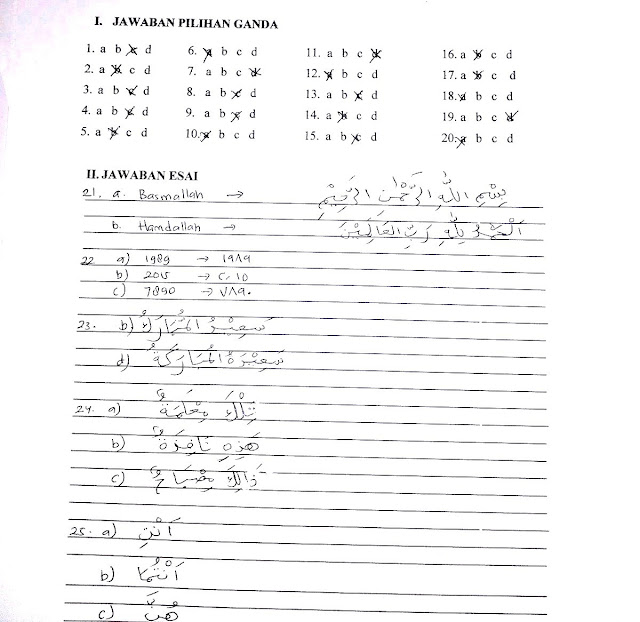 I. JAWABAN PILIHAN GANDA
1. a b c d 6. a b c d 11. a b c d 16. a b c d
2. a b c d 7. a b c d 12. a b c d 17. a b c d
3. a b c d 8. a b c d 13. a b c d 18. a b c d
4. a b c d 9. a b c d 14. a b c d 19. a b c d
5. a b c d 10. a b c d 15. a b c d 20. a b c d
II. JAWABAN ESAI
21. a. Basmallah → بِسْمِ اللّٰهِ الرَّحْمٰنِ الرَّحِيْمِ
b. Hamdallah → اَلْحَمْدُ لِلّٰهِ رَبِّ الْعَالَمِيْنَ
22 a) 1989 → ١٩٨٩
b) 2015 → ٢٠١٥
c) 7890 → ٧٨٩٠
23. b) الْمُبَارَكُ
d) الْمُبَارَكَةُ
24. a) تِلْكَ مِعْلَمَةٌ
b) هَذِهِ نَافِذَةٌ
c) ذَالِكَ مِصْبَاحٌ
25. a) اَنْتِ
b) اَنْتُمَا
c) هُنَّ